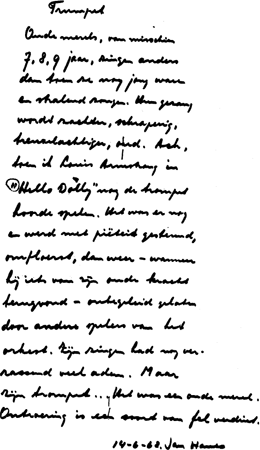 Trumpet
Oude merels, van misschien
7, 8, 9 jaar, zingen anders
dan toen ze nog jong waren
en stralend zongen. Hun gezang
wordt zachter, schraperig,
treuzelachtiger, oud. Ach,
toen ik Louis Armstrong in
"Hello Dolly" nog de trompet
hoorde spelen. Het was er nog
en werd met piëteit gesteund,
omfloerst, dan weer – wanneer
hij iets van zijn oude kracht
terugvond – onbegeleid gelaten
door andere spelers van het
orkest. Zijn zingen had nog ver-
rassend veel adem. Maar
zijn trompet... Het was een oude merel.
Ontroering is een soort van fel verdriet.
14-6-68. Jan